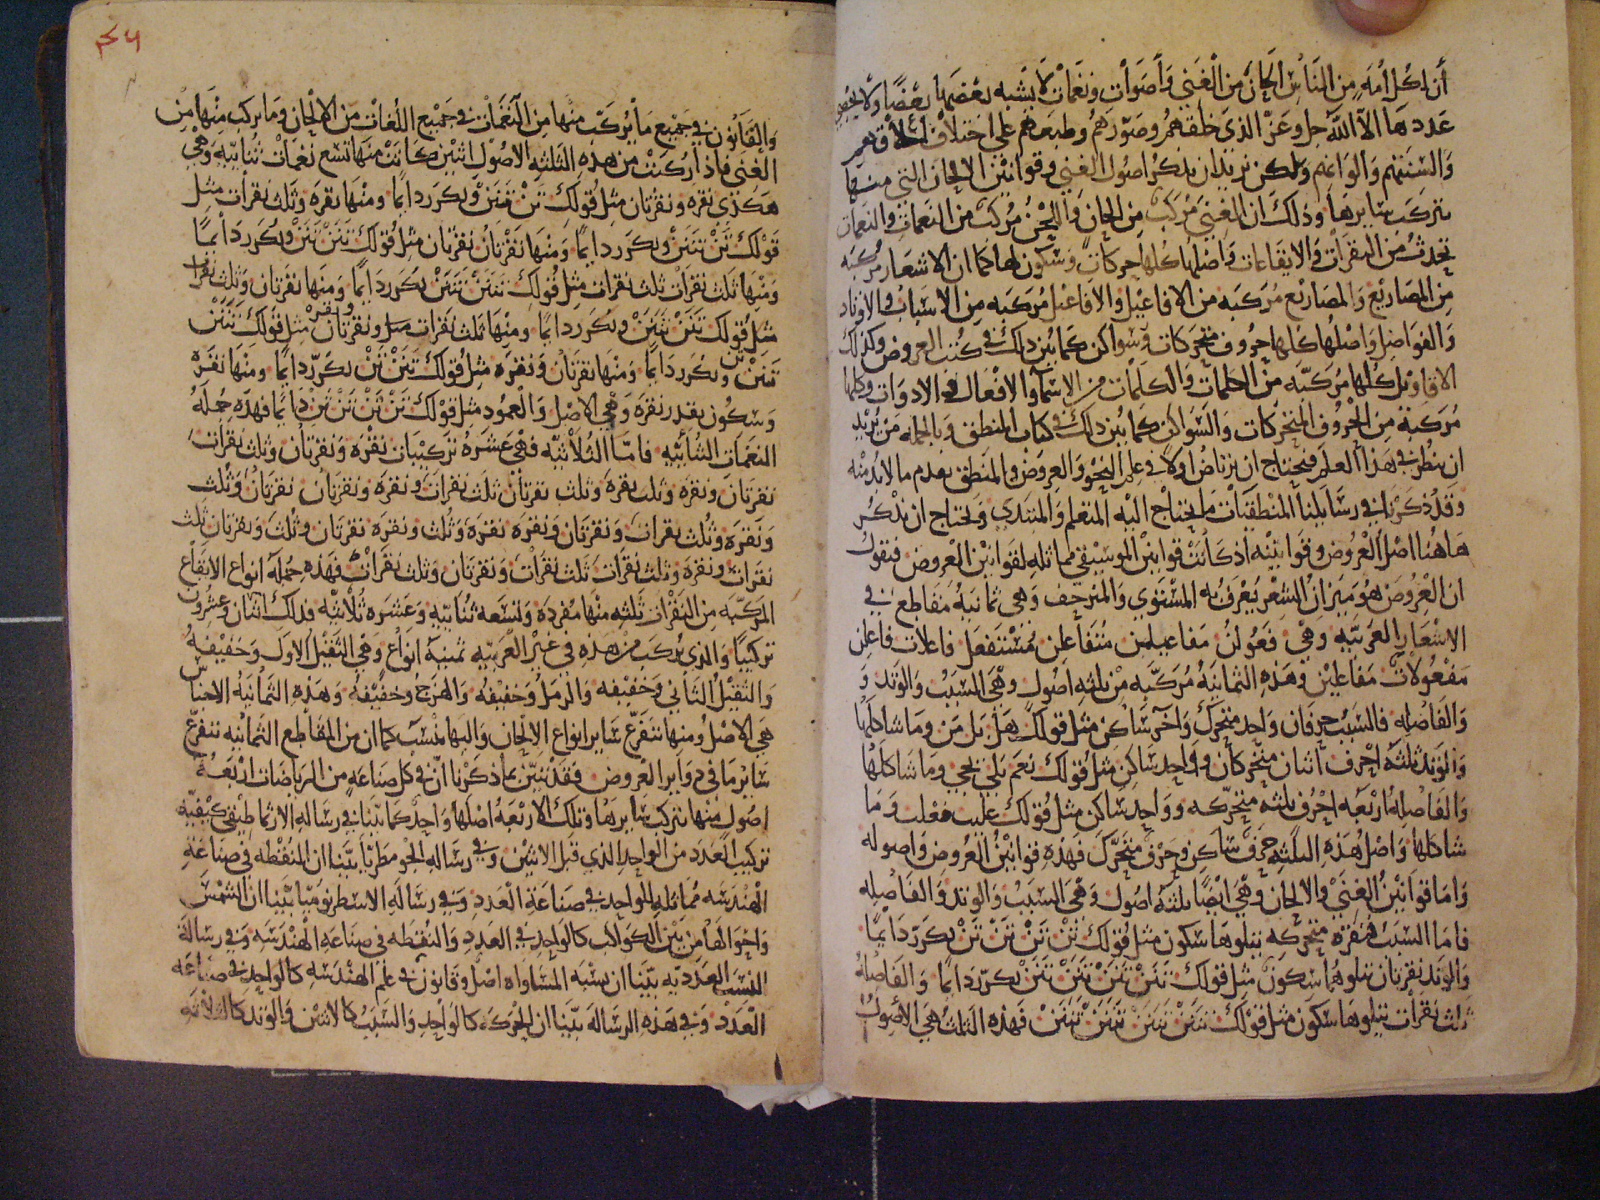 أن لكل أمة من الناس ألحان من الغنى وأصوات ونغمات لا يشبه بعضها بعضا ولا يحصي
عددها الا الله جل وعز الذى خلقهم وصورهم وطبعهم على اختلاف أخلاقهم
والسنتهم والوانهم ولكن نريد ان نذكر اصول الغنى وقوانين الالحان التي منها
يتركب سايرها وذلك ان الغنى مركب من الحان واللحن مركب من النغمات والنغمات
تحدث من النقرات والايقاعات واصلها كلها حركات وسكون لها كما ان الاشعار مركبه
من المصاريع والمصاريع مركبه من الافاعيل والافاعيل مركبه من الاسباب والاوتاد
والفواصل واصلها كلها حروف متحركات وسواكن كما بين ذلك في كتب العروض وكذلك
الاقاويل كلها مركبه من الكلمات والكلمات من الاسما والافعال والادوات وكلها
مركبة من الحروف المتحركات والسواكن كما بين ذلك في كتاب المنطق وبالجمله من يريد
ان ينظر في هذا العلم فيحتاج ان يرتاض اولا في علم النحو والعروض والمنطق بعدم مالابد منه
وقد ذكرنا في رسايلنا المنطقيات ما يحتاج اليه المتعلم والمبتدي ونحتاج ان نذكر
هاهنا اصل العروض وقوانينه اذ كانت قوانين الموسيقى مماثله لقوانين العروض فنقول
ان العروض هو ميزان الشعر يعرف به المستوي والمنزحف وهي ثمانية مقاطع في
الاشعار العربيه وهي فعولن مفاعيلن متفاعلن مستفعل فاعلات فاعلن
مفعولات مفاعلين وهذه الثمانية مركبه من ثلثه اصول وهي السبب والوتد و
والفاصله فالسبب حرفان واحد متحرك وآخر ساكن مثل قولك هل بل من وما شاكلها
والوتد ثلثه احرف اثنان متحركان وواحد ساكن مثل قولك نعم بلى وما شاكلها
والفاصله اربعه احرف ثلثه متحركه وواحد ساكن مثل قولك غلبت فعلت وما
شاكلها واصل هذه الثلثه حرف ساكن وحرف متحرك فهذه قوانين العروض واصوله
واما قوانين الغنى والالحان وهي ايضا ثلثه اصول وهي السبب والوتد والفاصله
فاما السبب فنقره متحركه يتلوها سكون مثل قولك تن تن تن تن يكرر دايما
والوتد نقرتان يتلوهما سكون مثل قولك تنن تنن تنن تنن يكرر دايما والفاصلة
ثلث نقرات يتلوها سكون مثل قولك تننن تننن تننن تننن فهذه الثلث هي الاصول
٤٦
والقانون في جميع ما يركب منها من النغمات في جميع اللغات من الالحان وما يركب منها من
الغنى فاذا ركبت من هذه الثلثه الاصول اثنين كانت منها تسع نغمات ثنائيه وهي
هكذى نقره ونقرتان مثل قولك تن تنن ويكرر دايما ومنها نقره وثلث نقرات مثل
قولك تن تننن ويكرر دايما ومنها نقرتان نقرتان مثل قولك تنن تنن ويكرر دايما
ومنها ثلث نقرات ثلث نقرات مثل قولك تننن تننن يكرر دايما ومنها نقرتان وثلث نقرات
مثل قولك تنن تننن ويكرر دايما ومنها ثلث نقرات ونقرتان مثل قولك تننن
ويكرر دايما ومنها نقرتان ونقره مثل قولك تنن تن يكرر دايما ومنها نقره
وسكون بقدر نقره وهي الاصل والعمود مثل قولك تن تن تن تن دائما فهذه جملة
النغمات الثنائيه فاما الثلاثيه فهي عشرة تركيبات نقره ونقرتان وثلث نقرات
نقرتان ونقره وثلث نقره وثلث نقرتان ثلث نقرات ونقره ونقرتان نقرتان وثلث
ونقره وثلث نقرات ونقرتان ونقره نقره وثلث ونقره نقرتان وثلث ونقرتان ثلث
نقرات ونقره وثلث نقرات ثلث نقرات ونقرتان وثلث نقرات فهذه جملة انواع الايقاع
المركبه من النقرات ثلثه منها مفردة وتسعه ثنائيه وعشره ثلاثيه فذلك اثنان وعشرون
تركيبا والذى يركب من هذه في غير العربيه ثمنية انواع وهي الثقيل الاول وخفيفه
والثقيل الثاني وخفيفه والرمل وخفيفه والهزج وخفيفه وهذه الثمانيه الاجناس
هي الاصل ومنها تتفرع ساير انواع الالحان واليها تنسب كما ان من المقاطع الثمانيه تتفرع
ساير ما في دواير العروض فقد تبين بما ذكرنا ان في كل صناعه من الرياضات اربعة
اصول منها يتركب سايرها وتلك الاربعه اصلها واحد كما بينا في رساله الارثماطيقى كيفيه
تركيب العدد من الواحد الذي قبل الاثنين وفي رساله الجومطريا بينا ان النقطه في صناعه
الهندسه مماثله للواحد في صناعة العدد وفي رساله الاسطرنوميا بينا ان الشمس
واحوالها من بين الكواكب كالواحد في العدد والنقطه في صناعه الهندسه وفي رسالة
النسب العدديه بينا ان نسبه المساواه اصل وقانون في علم الهندسه كالواحد في صناعه
العدد وفي هذه الرساله بينا ان الحركه كالواحد والسبب كالاثنين والوتد كالثلاثه